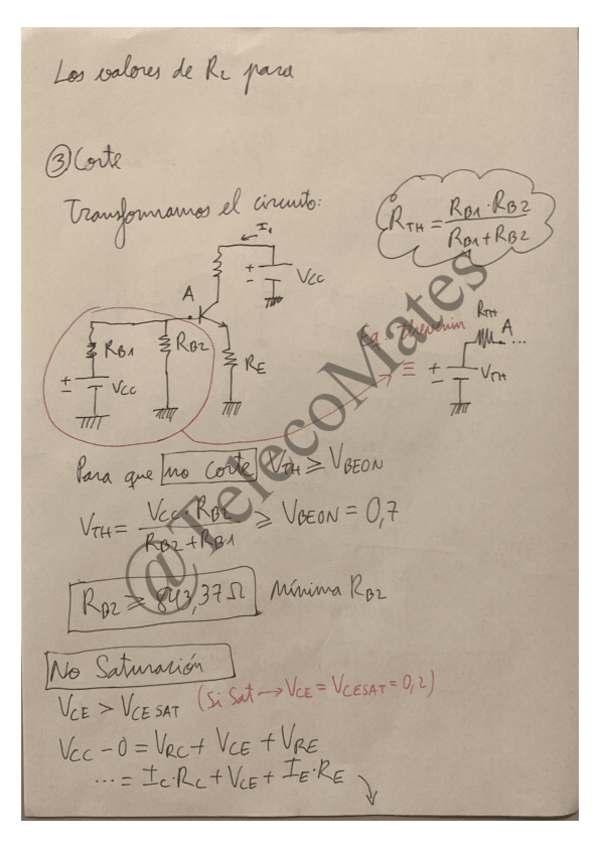 Los valores de R2 para
③ Corte
Transformamos el circuito:
R_TH = (R_B1 · R_B2) / (R_B1 + R_B2)
I1
+
-
V_CC
A
R_B1
R_B2
R_E
+
-
V_CC
Eq. Thevenin
≡
R_TH
A
...
+
-
V_TH
Para que no corte V_TH ≥ V_BEON
V_TH = (V_CC · R_B2) / (R_B2 + R_B1) ≥ V_BEON = 0,7
R_B2 ≥ 843,37 Ω Mínima R_B2
No Saturación
V_CE > V_CE SAT (Si Sat → V_CE = V_CESAT = 0,2)
V_CC - 0 = V_RC + V_CE + V_RE
... = I_C·R_C + V_CE + I_E·R_E
@TelecoMates